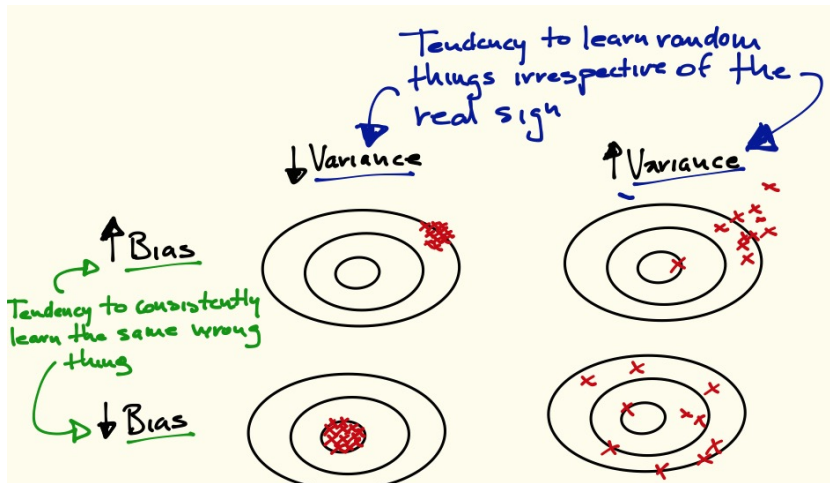 Tendency to learn random
things irrespective of the
real sign
↓ Variance
↑ Variance
↑ Bias
Tendency to consistently
learn the same wrong
thing
↓ Bias